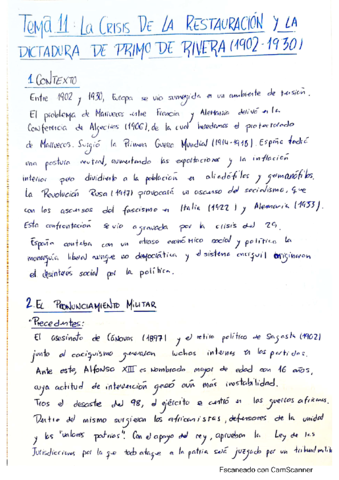 Tema 11: La Crisis De la Restauración y la
Dictadura de Primo de Rivera (1902-1930)
1. Contexto
Entre 1902 y 1930, Europa se vio sumergida a un ambiente de tensión.
El problema de Marruecos entre Francia y Alemania derivó en la
Conferencia de Algeciras (1906), de la cual heredamos el protectorado
de Marruecos. Surgió la Primera Guerra Mundial (1914-1918). España tendió
una postura neutral, aumentando las exportaciones y la inflación
interior pero dividiendo a la población en aliadófilos y germanófilos.
La Revolución Rusa (1917) provocará un ascenso del socialismo, que
con los ascensos del fascismo en Italia (1922) y Alemania (1933).
Esta confrontación se vio agravada por la crisis del 29.
España contaba con un atraso económico social y política la
monarquía liberal aunque no democrática y el sistema caciquil originaron
el desinterés social por la política.
2. El Pronunciamiento Militar
-Precedentes:
El asesinato de Cánovas (1897) y el retiro político de Sagasta (1902)
junto al caciquismo generaron luchas internas en los partidos.
Ante esto, Alfonso XIII es nombrado mayor de edad con 16 años,
cuya actitud de intervención generó aún más inestabilidad.
Tras el desastre del 98, el ejército se centró en las guerras africanas.
Dentro del mismo surgieron los africanistas, defensores de la unidad
y los "valores patrios". Con el apoyo del rey, aprueban la Ley de las
Jurisdicciones por la que todo ataque a la patria sería juzgado por un tribunal militar
Escaneado con CamScanner